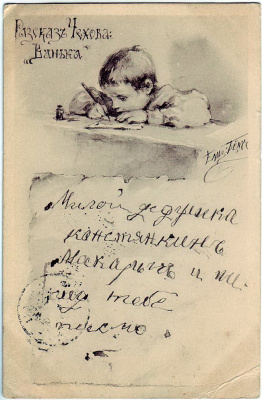 Разсказъ Чехова:
„Ванька“
Милой дедушка
канстянкинъ
Макарычъ и пи-
шу тебе
письмо.